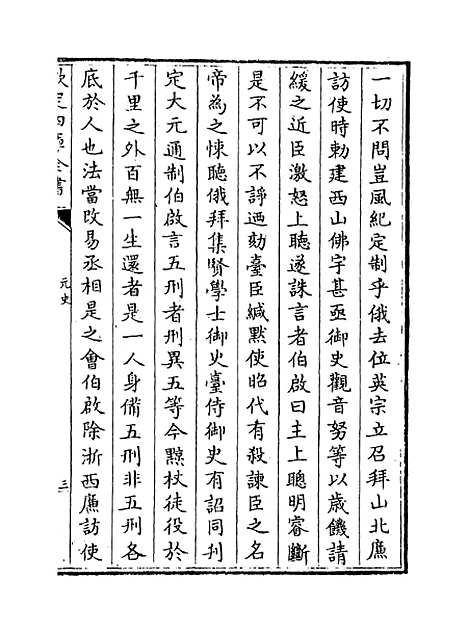 一切不問豈風紀定制乎俄去位英宗立召拜山北廉
訪使時勅建西山佛宇甚亟御史觀音努等以歲饑請
緩之近臣激怒上聽遂誅言者伯啟曰主上聰明睿斷
是不可以不諍迺劾臺臣緘默使昭代有殺諫臣之名
帝為之悚聽俄拜集賢學士御史臺侍御史有詔同刋
定大元通制伯啟言五刑者刑異五等今黥杖徒役於
千里之外百無一生還者是一人身備五刑非五刑各
底於人也法當改易丞相是之會伯啟除浙西廉訪使
欽定四庫全書
元史
三